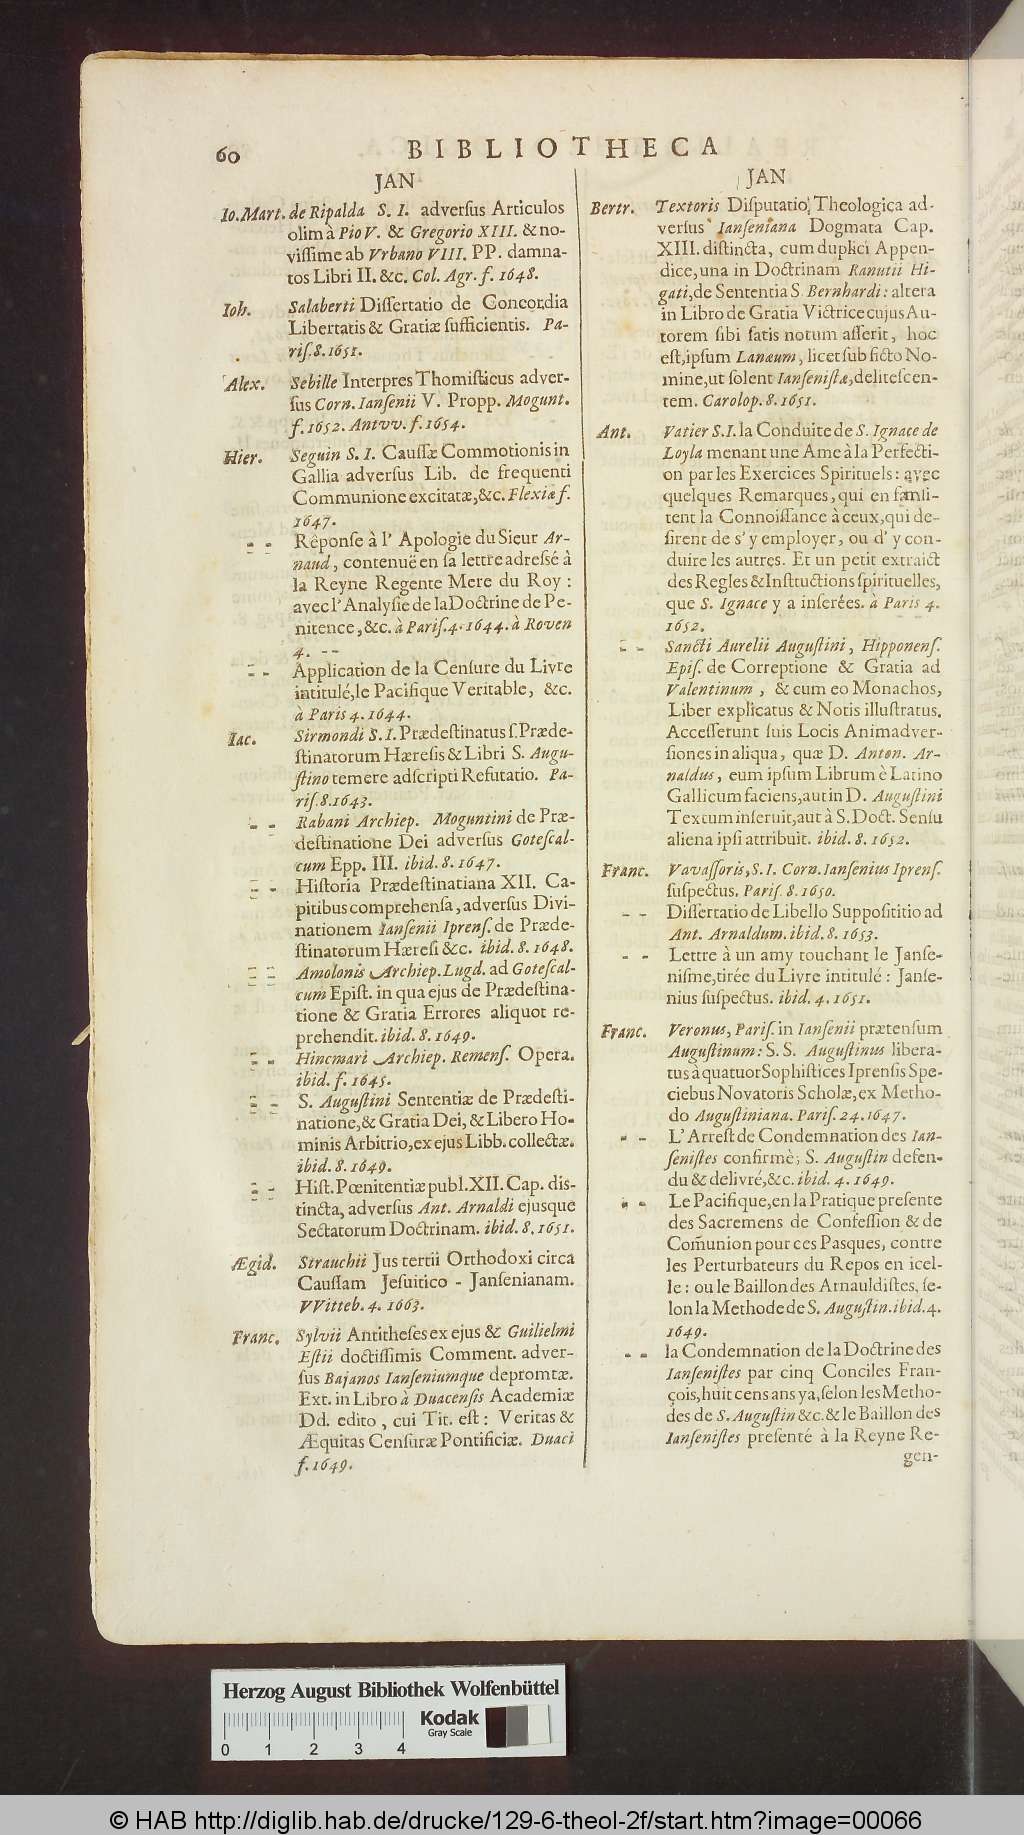 60
BIBLIOTHECA
JAN
Io. Mart. de Ripalda S. I. adverſus Articulos
olim à Pio V. & Gregorio XIII. & no-
viſſime ab Vrbano VIII. PP. damna-
tos Libri II. &c. Col. Agr. f. 1648.
Ioh. Salaberti Diſſertatio de Concordia
Libertatis & Gratiæ ſufficientis. Pa-
riſ. 8. 1651.
Alex. Sebille Interpres Thomiſticus adver-
ſus Corn. Ianſenii V. Propp. Mogunt.
f. 1652. Antvv. f. 1654.
Hier. Seguin S. I. Cauſſæ Commotionis in
Gallia adverſus Lib. de frequenti
Communione excitatæ, &c. Flexiæ f.
1647.
- - Rêponſe à l' Apologie du Sieur Ar-
naud, contenuë en ſa lettre adreſſé à
la Reyne Regente Mere du Roy:
avec l'Analyſie de la Doctrine de Pe-
nitence, &c. à Pariſ. 4. 1644. à Roven
4. - -
- - Application de la Cenſure du Livre
intitulé, le Pacifique Veritable, &c.
à Paris 4. 1644.
Iac. Sirmondi S. I. Prædeſtinatus ſ. Præde-
ſtinatorum Hæreſis & Libri S. Augu-
ſtino temere adſcripti Refutatio. Pa-
riſ. 8. 1643.
- - Rabani Archiep. Moguntini de Præ-
deſtinatione Dei adverſus Goteſcal-
cum Epp. III. ibid. 8. 1647.
- - Hiſtoria Prædeſtinatiana XII. Ca-
pitibus comprehenſa, adverſus Divi-
nationem Ianſenii Iprenſ. de Præde-
ſtinatorum Hæreſi &c. ibid. 8. 1648.
- - Amolonis Archiep. Lugd. ad Goteſcal-
cum Epiſt. in qua ejus de Prædeſtina-
tione & Gratia Errores aliquot re-
prehendit. ibid. 8. 1649.
- - Hincmari Archiep. Remenſ. Opera.
ibid. f. 1645.
- - S. Auguſtini Sententiæ de Prædeſti-
natione, & Gratia Dei, & Libero Ho-
minis Arbitrio, ex ejus Libb. collectæ.
ibid. 8. 1649.
- - Hiſt. Pœnitentiæ publ. XII. Cap. dis-
tincta, adverſus Ant. Arnaldi ejusque
Sectatorum Doctrinam. ibid. 8. 1651.
Ægid. Strauchii Jus tertii Orthodoxi circa
Cauſſam Jeſuitico - Janſenianam.
VVitteb. 4. 1663.
Franc. Sylvii Antitheſes ex ejus & Guilielmi
Eſtii doctiſſimis Comment. adver-
ſus Bajanos Ianſeniumque depromtæ.
Ext. in Libro à Duacenſis Academiæ
Dd. edito, cui Tit. eſt: Veritas &
Æquitas Cenſuræ Pontificiæ. Duaci
f. 1649.
JAN
Bertr. Textoris Diſputatio Theologica ad-
verſus Ianſeniana Dogmata Cap.
XIII. diſtincta, cum duplici Appen-
dice, una in Doctrinam Ranutii Hi-
gati, de Sententia S. Bernhardi: altera
in Libro de Gratia Victrice cujus Au-
torem ſibi ſatis notum aſſerit, hoc
eſt, ipſum Lanæum, licet ſub ficto No-
mine, ut ſolent Ianſeniſtæ, deliteſcen-
tem. Carolop. 8. 1651.
Ant. Vatier S. I. la Conduite de S. Ignace de
Loyla menant une Ame à la Perfecti-
on par les Exercices Spirituels: avec
quelques Remarques, qui en faſili-
tent la Connoiſſance à ceux, qui de-
ſirent de s' y employer, ou d' y con-
duire les autres. Et un petit extraict
des Regles & Inſtructions ſpirituelles,
que S. Ignace y a inſerées. à Paris 4.
1652.
- - Sancti Aurelii Auguſtini, Hipponenſ.
Epiſ. de Correptione & Gratia ad
Valentinum, & cum eo Monachos,
Liber explicatus & Notis illuſtratus.
Acceſſerunt ſuis Locis Animadver-
ſiones in aliqua, quæ D. Anton. Ar-
naldus, eum ipſum Librum è Latino
Gallicum faciens, aut in D. Auguſtini
Textum inſeruit, aut à S. Doct. Senſu
aliena ipſi attribuit. ibid. 8. 1652.
Franc. Vavaſſoris, S. I. Corn. Ianſenius Iprenſ.
ſuſpectus. Pariſ. 8. 1650.
- - Diſſertatio de Libello Suppoſititio ad
Ant. Arnaldum. ibid. 8. 1653.
- - Lettre à un amy touchant le Janſe-
niſme, tirée du Livre intitulé: Janſe-
nius ſuſpectus. ibid. 4. 1651.
Franc. Veronus, Pariſ. in Ianſenii prætenſum
Auguſtinum: S. S. Auguſtinus libera-
tus à quatuor Sophiſtices Iprenſis Spe-
ciebus Novatoris Scholæ, ex Metho-
do Auguſtiniana. Pariſ. 24. 1647.
- - L' Arreſt de Condemnation des Ian-
ſeniſtes confirmè; S. Auguſtin defen-
du & delivré, &c. ibid. 4. 1649.
- - Le Pacifique, en la Pratique preſente
des Sacremens de Confeſſion & de
Com̃union pour ces Pasques, contre
les Perturbateurs du Repos en icel-
le: ou le Baillon des Arnauldiſtes, ſe-
lon la Methode de S. Auguſtin. ibid. 4.
1649.
- - la Condemnation de la Doctrine des
Ianſeniſtes par cinq Conciles Fran-
çois, huit cens ans ya, ſelon les Metho-
des de S. Auguſtin &c. & le Baillon des
Ianſeniſtes preſenté à la Reyne Re-
gen-
Herzog August Bibliothek Wolfenbüttel
Kodak
Gray Scale
0 1 2 3 4
© HAB http://diglib.hab.de/drucke/129-6-theol-2f/start.htm?image=00066